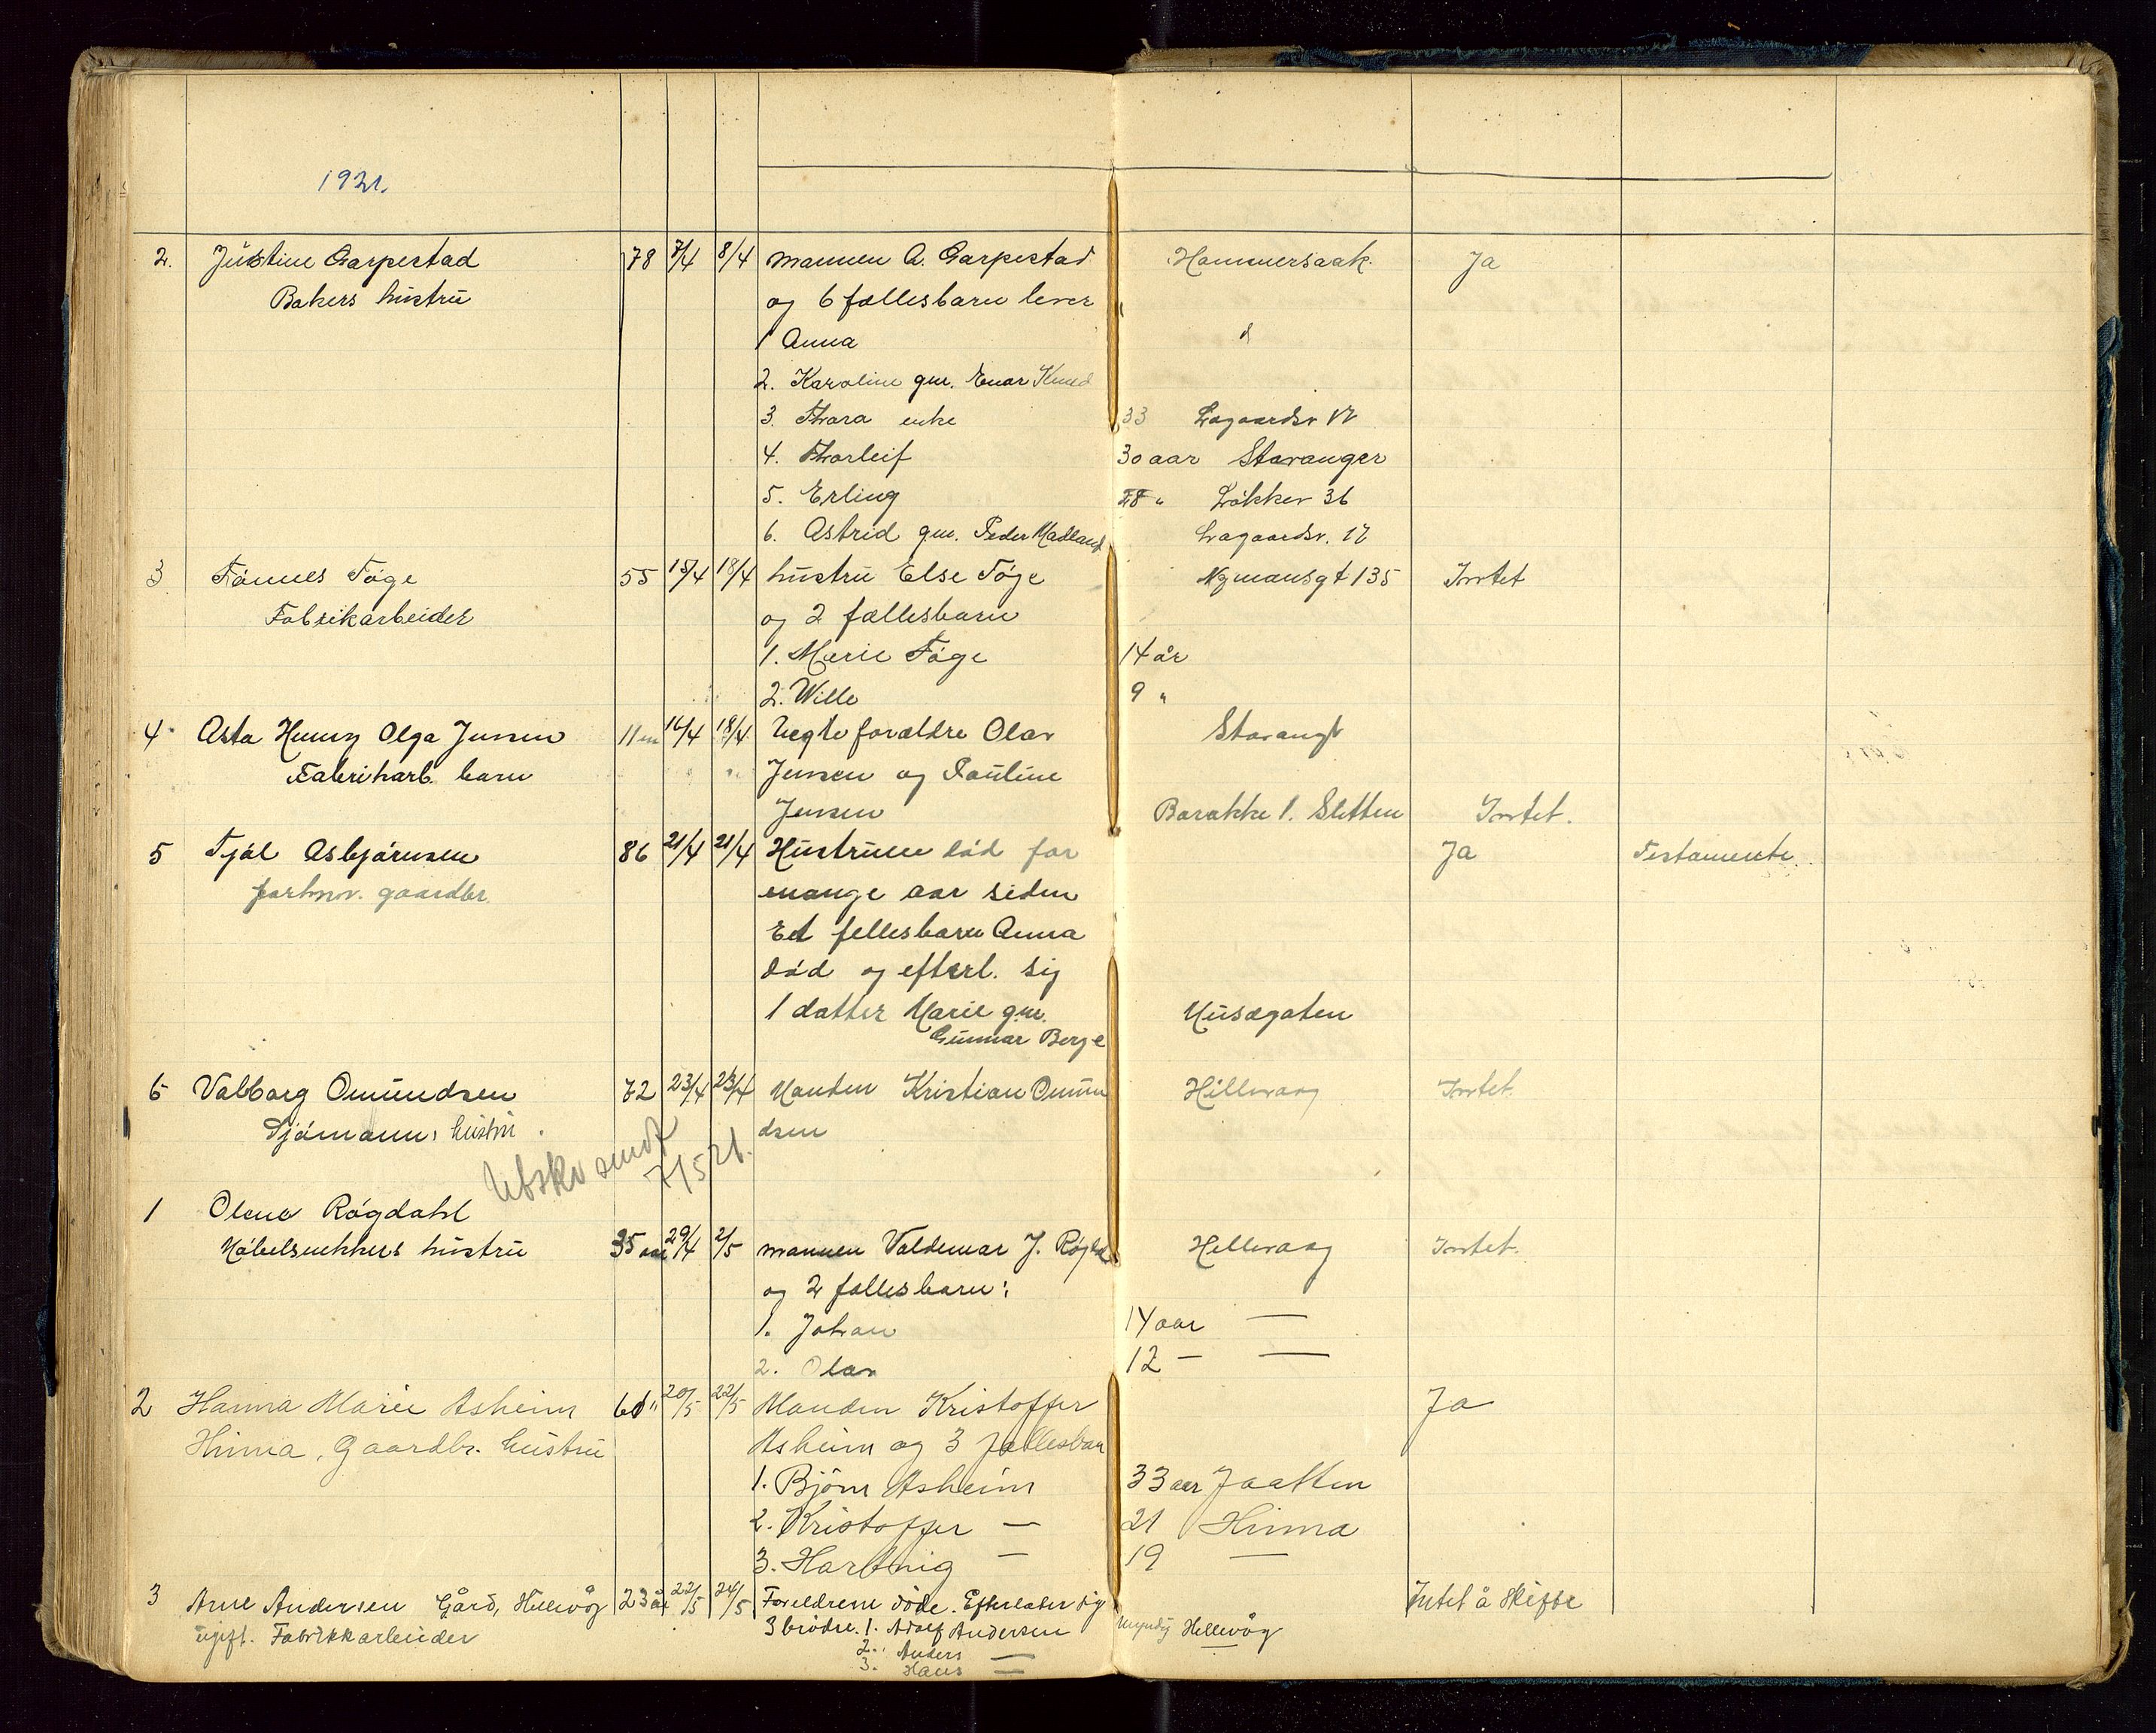 1921.
2. Justine Garpestad 78 7/4 8/4 mannen A. Garpestad Hammersaak. Ja
Bakers hustru og 6 fællesbarn lever
1 Anna
2. Karoline gm. Enar
3. Thora enke 33 Lagaardsv 17
4. Thorleif 30 aar Stavanger
5. Erling 28 " Løkkev 36
6. Astrid gm. Peder Madland Lagaardsv. 17
3 Tønnes Tøge 55 15/4 18/4 hustru Else Tøge Nymansgt 135 Intet
Fabrikarbeider og 2 fællesbarn
1. Marie Tøge 14 år
2. Wille 9 "
4 Asta Henny Olga Jensen 11 m 16/4 18/4 Ægte forældre Olav Stavanger
Fabrikarb. barn Jensen og Pauline
Jensen Barakke 1. Sletten Intet.
5 Tjøl Asbjørnsen 86 21/4 21/4 Hustruen død for Ja Testamente.
forhnv. gaardbr. mange aar siden
Et fellesbarn Anna
død og efterl. sig
1 datter Marie gm. Musægaten
Gunnar Berge
6 Valborg Omundsen 72 23/4 23/4 Manden Kristian Omun Hillevaag Intet.
Sjømanns hustru . dsen
Utskr sendt 7/5 21.
1 Olene Røgdahl
Møbelsnekkers hustru 35 aar 29/4 2/5 mannen Valdemar J. Hillevaag Intet.
og 2 fællesbarn:
1. Johan 14 aar —
2. Olav 12 — —
2 Hanna Marie Asheim 61 " 20/5 22/5 Manden Kristoffer Ja
Hinna, Gaardbr. hustru Asheim og 3 fællesbar
1. Bjørn Asheim 33 aar Jaatten
2. Kristoffer — 21 Hinna
3. Hartvig — 19 —
3 Arne Andersen Gård, Hillevåg 23 år 22/5 24/5 Foreldrene døde. Efterlater sig Intet å skifte
ugift. Fabrikkarbeider 3 brødre. 1. Adolf Andersen myndig Hillevåg
2. Anders —
3. Hans —